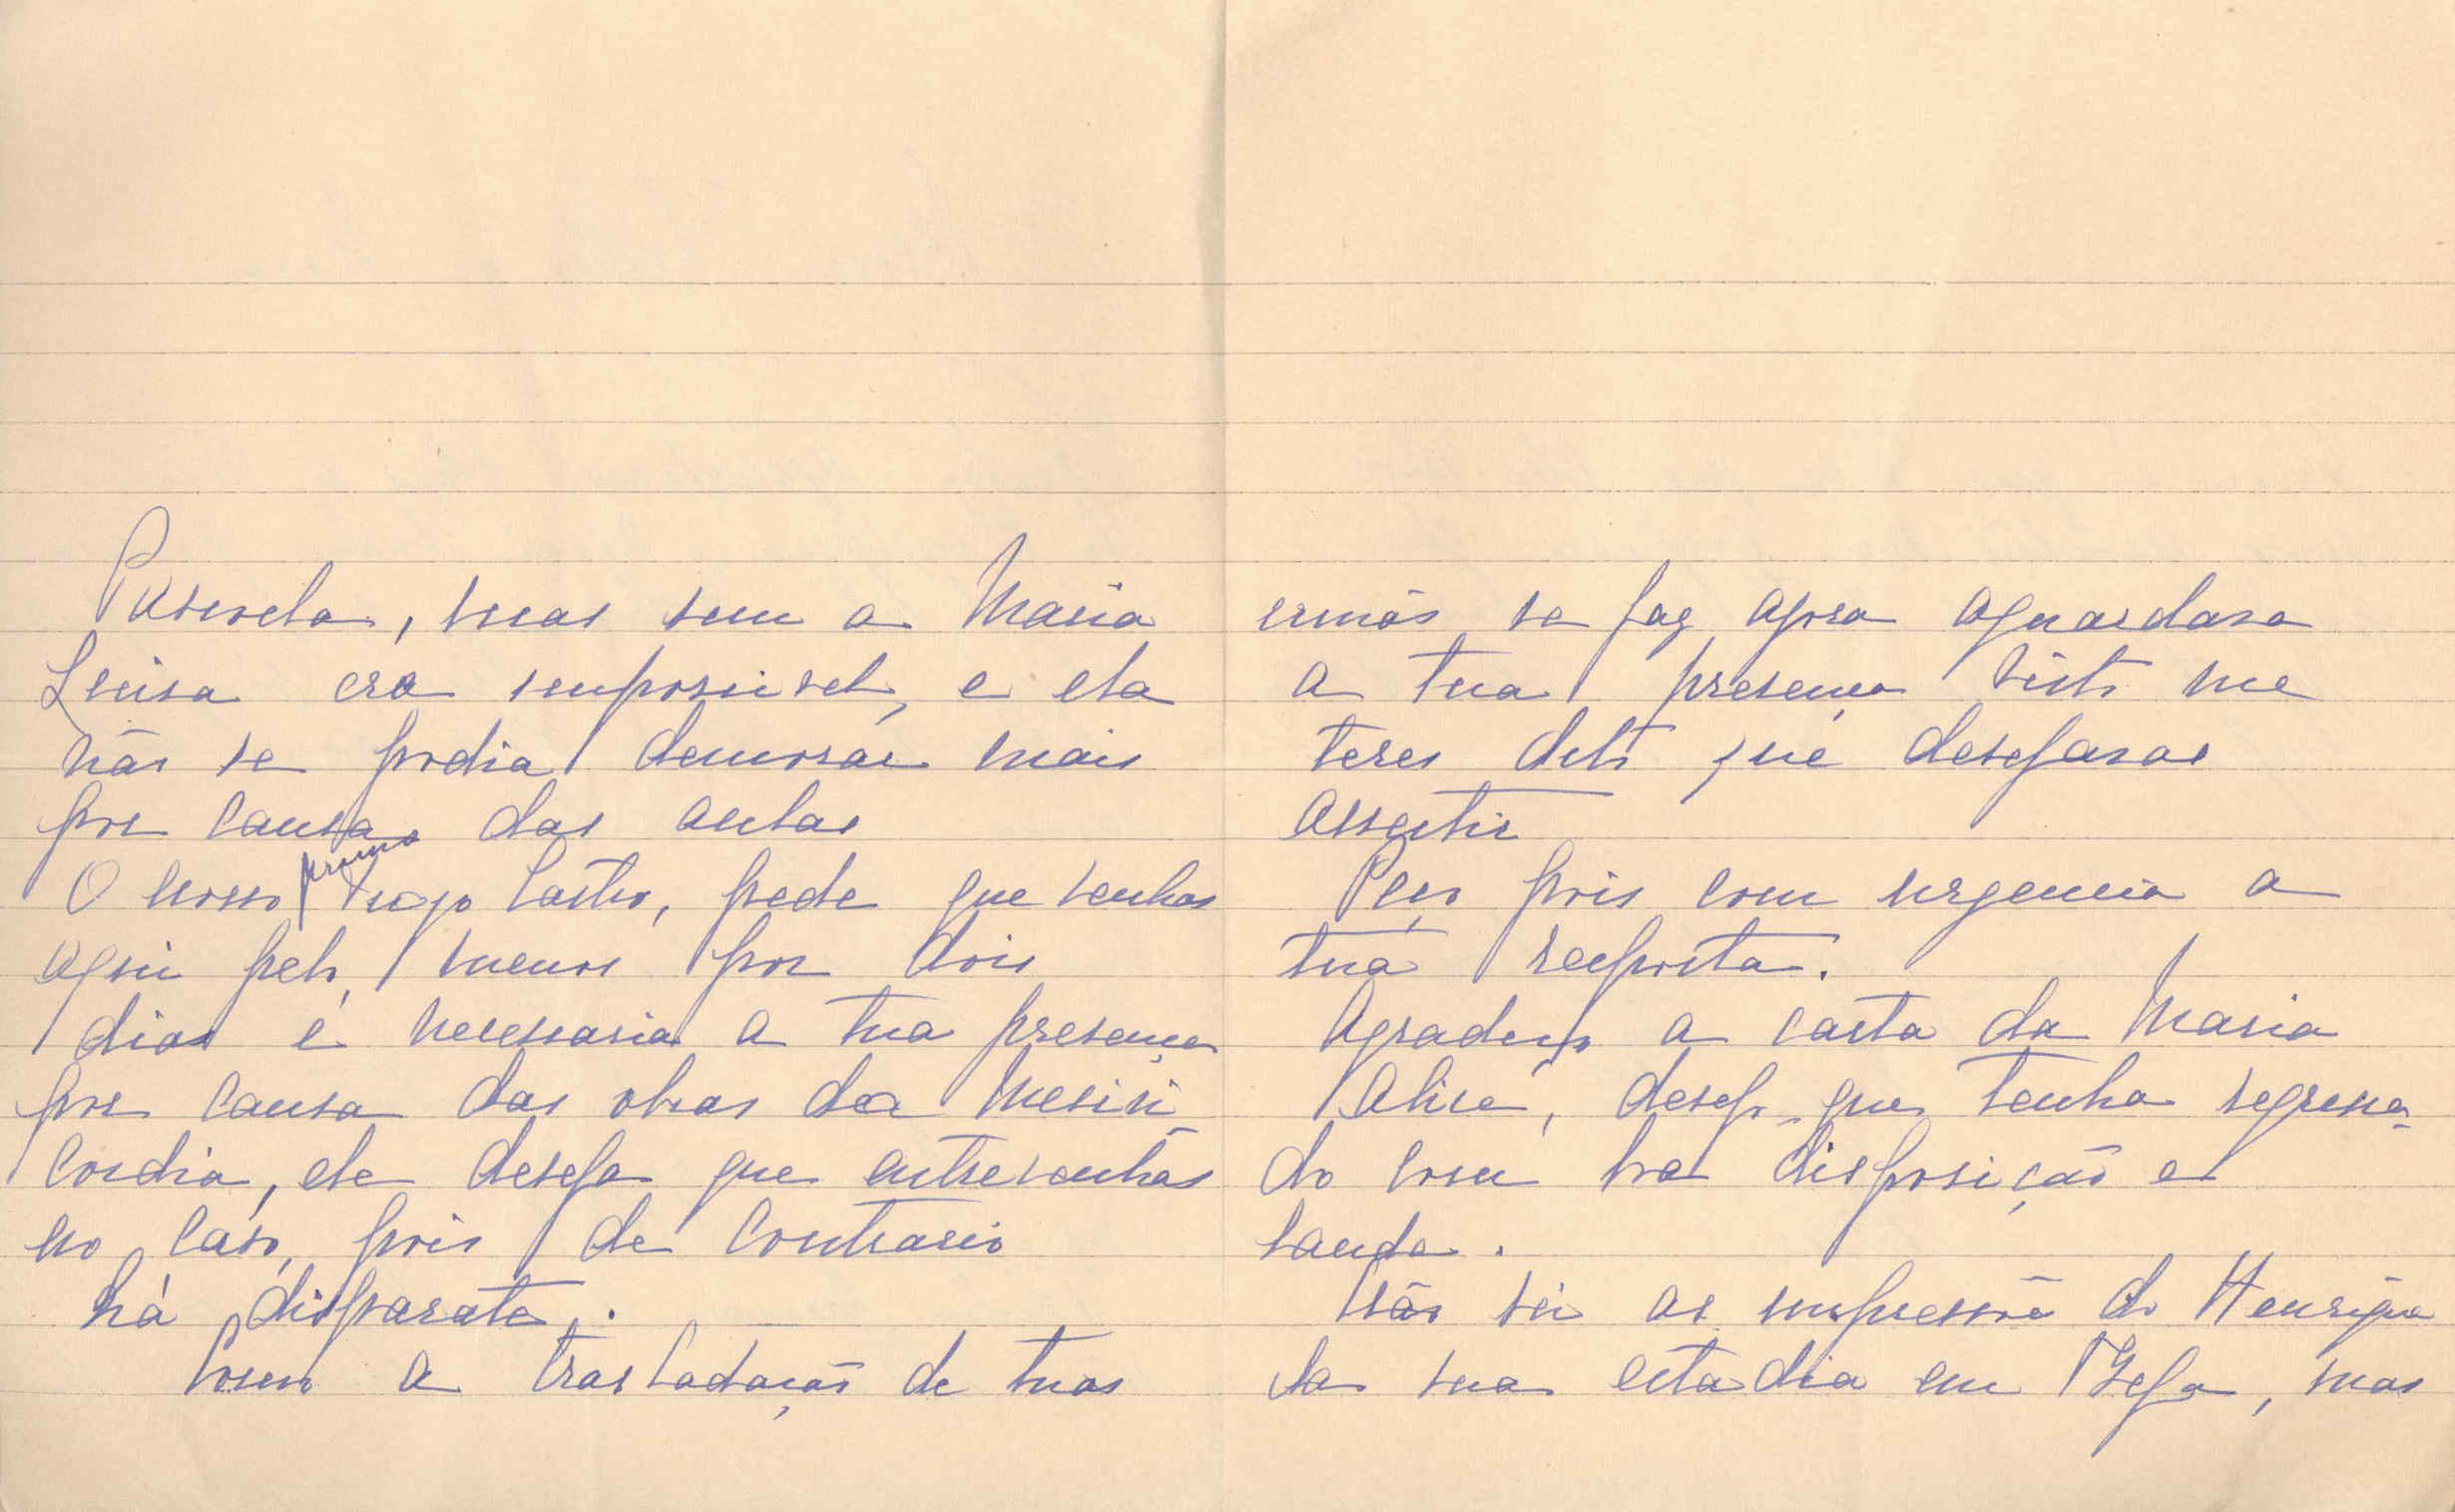 mas sem a Maria
Luisa era impossivel, e ela
não se podia demorar mais
por causa das aulas
O nosso primo Hugo Castro, pede que venhas
aqui pelo menos por dois
dias é necessaria a tua presença
por causa das obras da Meseri
cordia, ele deseja que entrevenhas
no caso, pois de contrario
há disparate.
Como a trasladação de tuas
irmãs se faz agora aguardava
a tua presença visto me
teres dito que desejavas
assestir
Peço pois com urgencia a
tua resposta.
Agradeço a carta da Maria
Alice, desejo que tenha regressa-
do com boa disposição e
saude.
Não sei as impressõe do Henrique
da sua estadia em mas